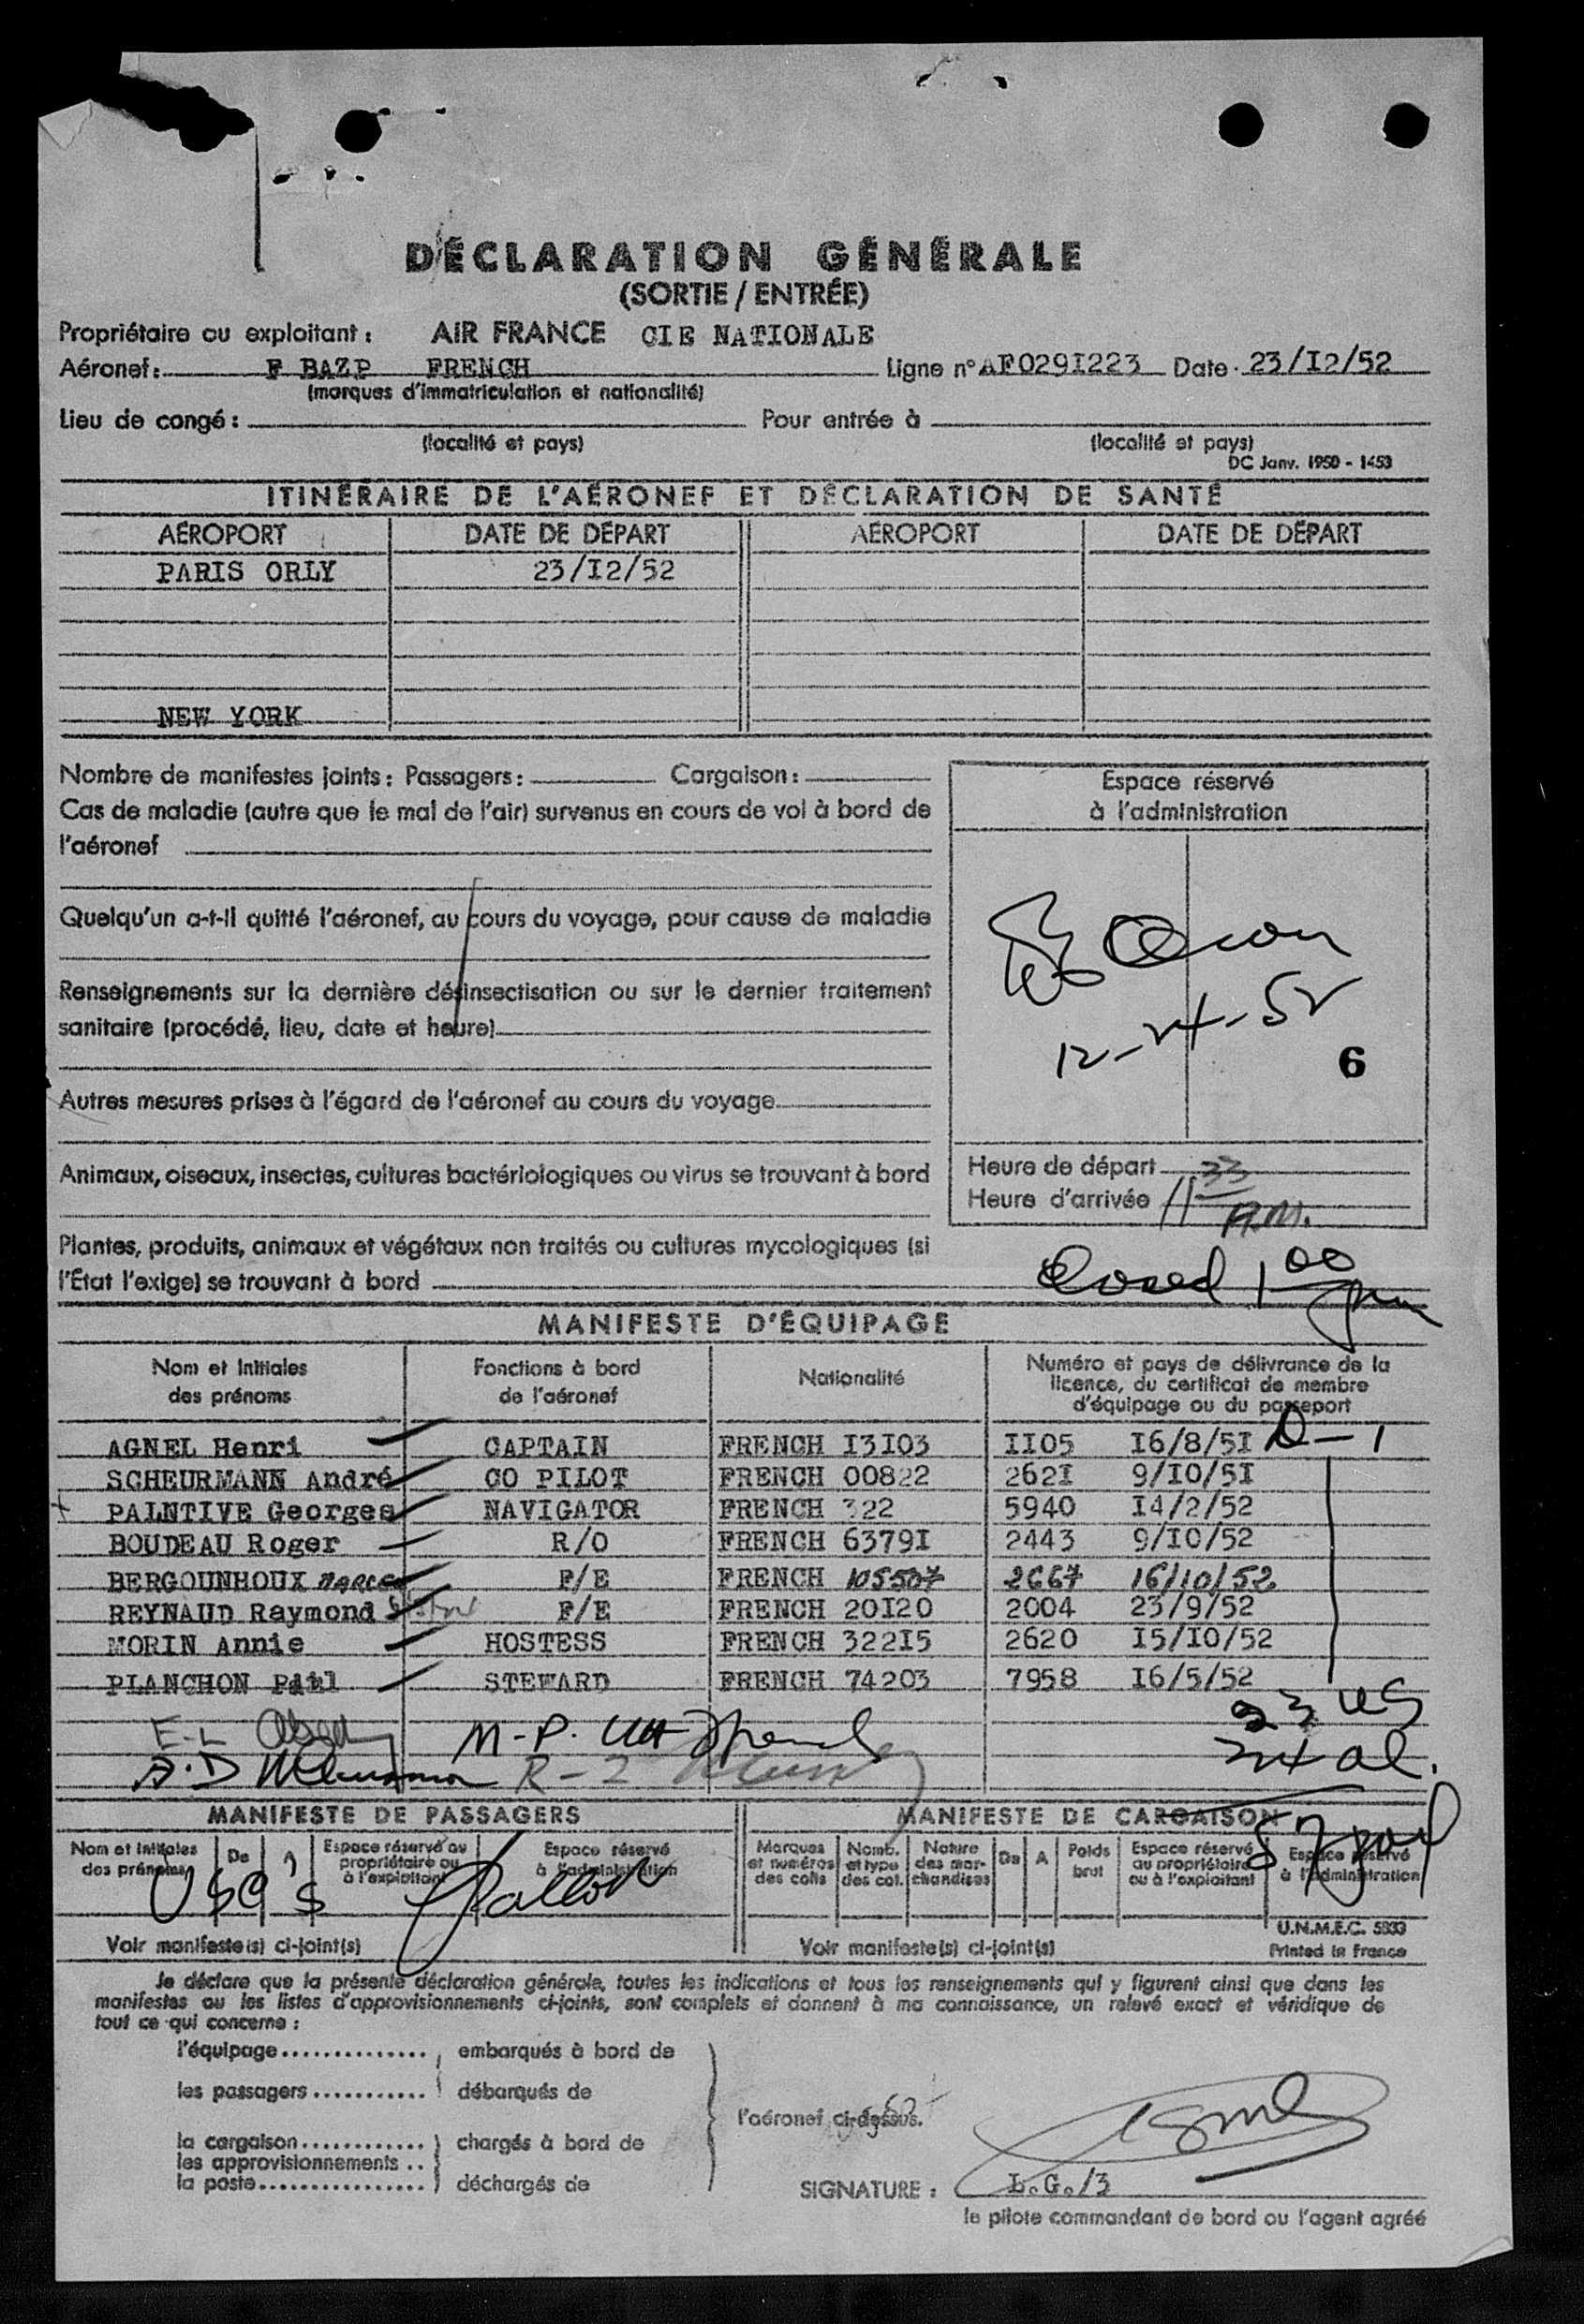 DÉCLARATION GÉNÉRALE
(SORTIE / ENTRÉE)
Propriétaire ou exploitant : AIR FRANCE CIE NATIONALE
Aéronef : F BAZP FRENCH Ligne n° AF029I223 Date 23/I2/52
(marques d'immatriculation et nationalité)
Lieu de congé : Pour entrée à
(localité et pays) (localité et pays)
DC Janv. 1950 - 1453
ITINÉRAIRE DE L'AÉRONEF ET DÉCLARATION DE SANTÉ
AÉROPORT DATE DE DÉPART AÉROPORT DATE DE DÉPART
PARIS ORLY 23/I2/52
NEW YORK
Nombre de manifestes joints : Passagers : Cargaison :
Cas de maladie (autre que le mal de l'air) survenus en cours de vol à bord de
l'aéronef
Quelqu'un a-t-il quitté l'aéronef, au cours du voyage, pour cause de maladie
Renseignements sur la dernière désinsectisation ou sur le dernier traitement
sanitaire (procédé, lieu, date et heure)
Autres mesures prises à l'égard de l'aéronef au cours du voyage
Animaux, oiseaux, insectes, cultures bactériologiques ou virus se trouvant à bord
Plantes, produits, animaux et végétaux non traités ou cultures mycologiques (si
l'État l'exige) se trouvant à bord
Espace réservé
à l'administration
12-24-52
6
Heure de départ
Heure d'arrivée 11 33
A.M.
Closed 1 00
MANIFESTE D'ÉQUIPAGE
Nom et Initiales des prénoms Fonctions à bord de l'aéronef Nationalité Numéro et pays de délivrance de la licence, du certificat de membre d'équipage ou du passeport
AGNEL Henri CAPTAIN FRENCH I3I03 II05 I6/8/5I D-1
SCHEURMANN André CO PILOT FRENCH 00822 262I 9/I0/5I
PALNTIVE Georges NAVIGATOR FRENCH 322 5940 I4/2/52
BOUDEAU Roger R/O FRENCH 6379I 2443 9/I0/52
BERGOUNHOUX MARCEL F/E FRENCH 105507 2667 16/10/52
REYNAUD Raymond F/E FRENCH 20I20 2004 23/9/52
MORIN Annie HOSTESS FRENCH 322I5 2620 I5/I0/52
PLANCHON Paul STEWARD FRENCH 74203 7958 I6/5/52
23 US
E-L M-P.
24 al.
A.D R-2
MANIFESTE DE PASSAGERS MANIFESTE DE CARGAISON
Nom et Initiales des prénoms De A Espace réservé au propriétaire ou à l'exploitant Espace réservé à l'administration
Marques et numéros des colis Nomb. et type des col. Nature des marchandises De A Poids brut Espace réservé au propriétaire ou à l'exploitant Espace réservé à l'administration
U.N.M.E.C. 5833
Voir manifeste(s) ci-joint(s) Voir manifeste(s) ci-joint(s) Printed in France
Je déclare que la présente déclaration générale, toutes les indications et tous les renseignements qui y figurent ainsi que dans les
manifestes ou les listes d'approvisionnements ci-joints, sont complets et donnent à ma connaissance, un relevé exact et véridique de
tout ce qui concerne :
l'équipage.............. embarqués à bord de
les passagers........... débarqués de
l'aéronef ci-dessus.
la cargaison............ chargés à bord de
les approvisionnements ..
la poste................ déchargés de
SIGNATURE : L.G./3
le pilote commandant de bord ou l'agent agréé